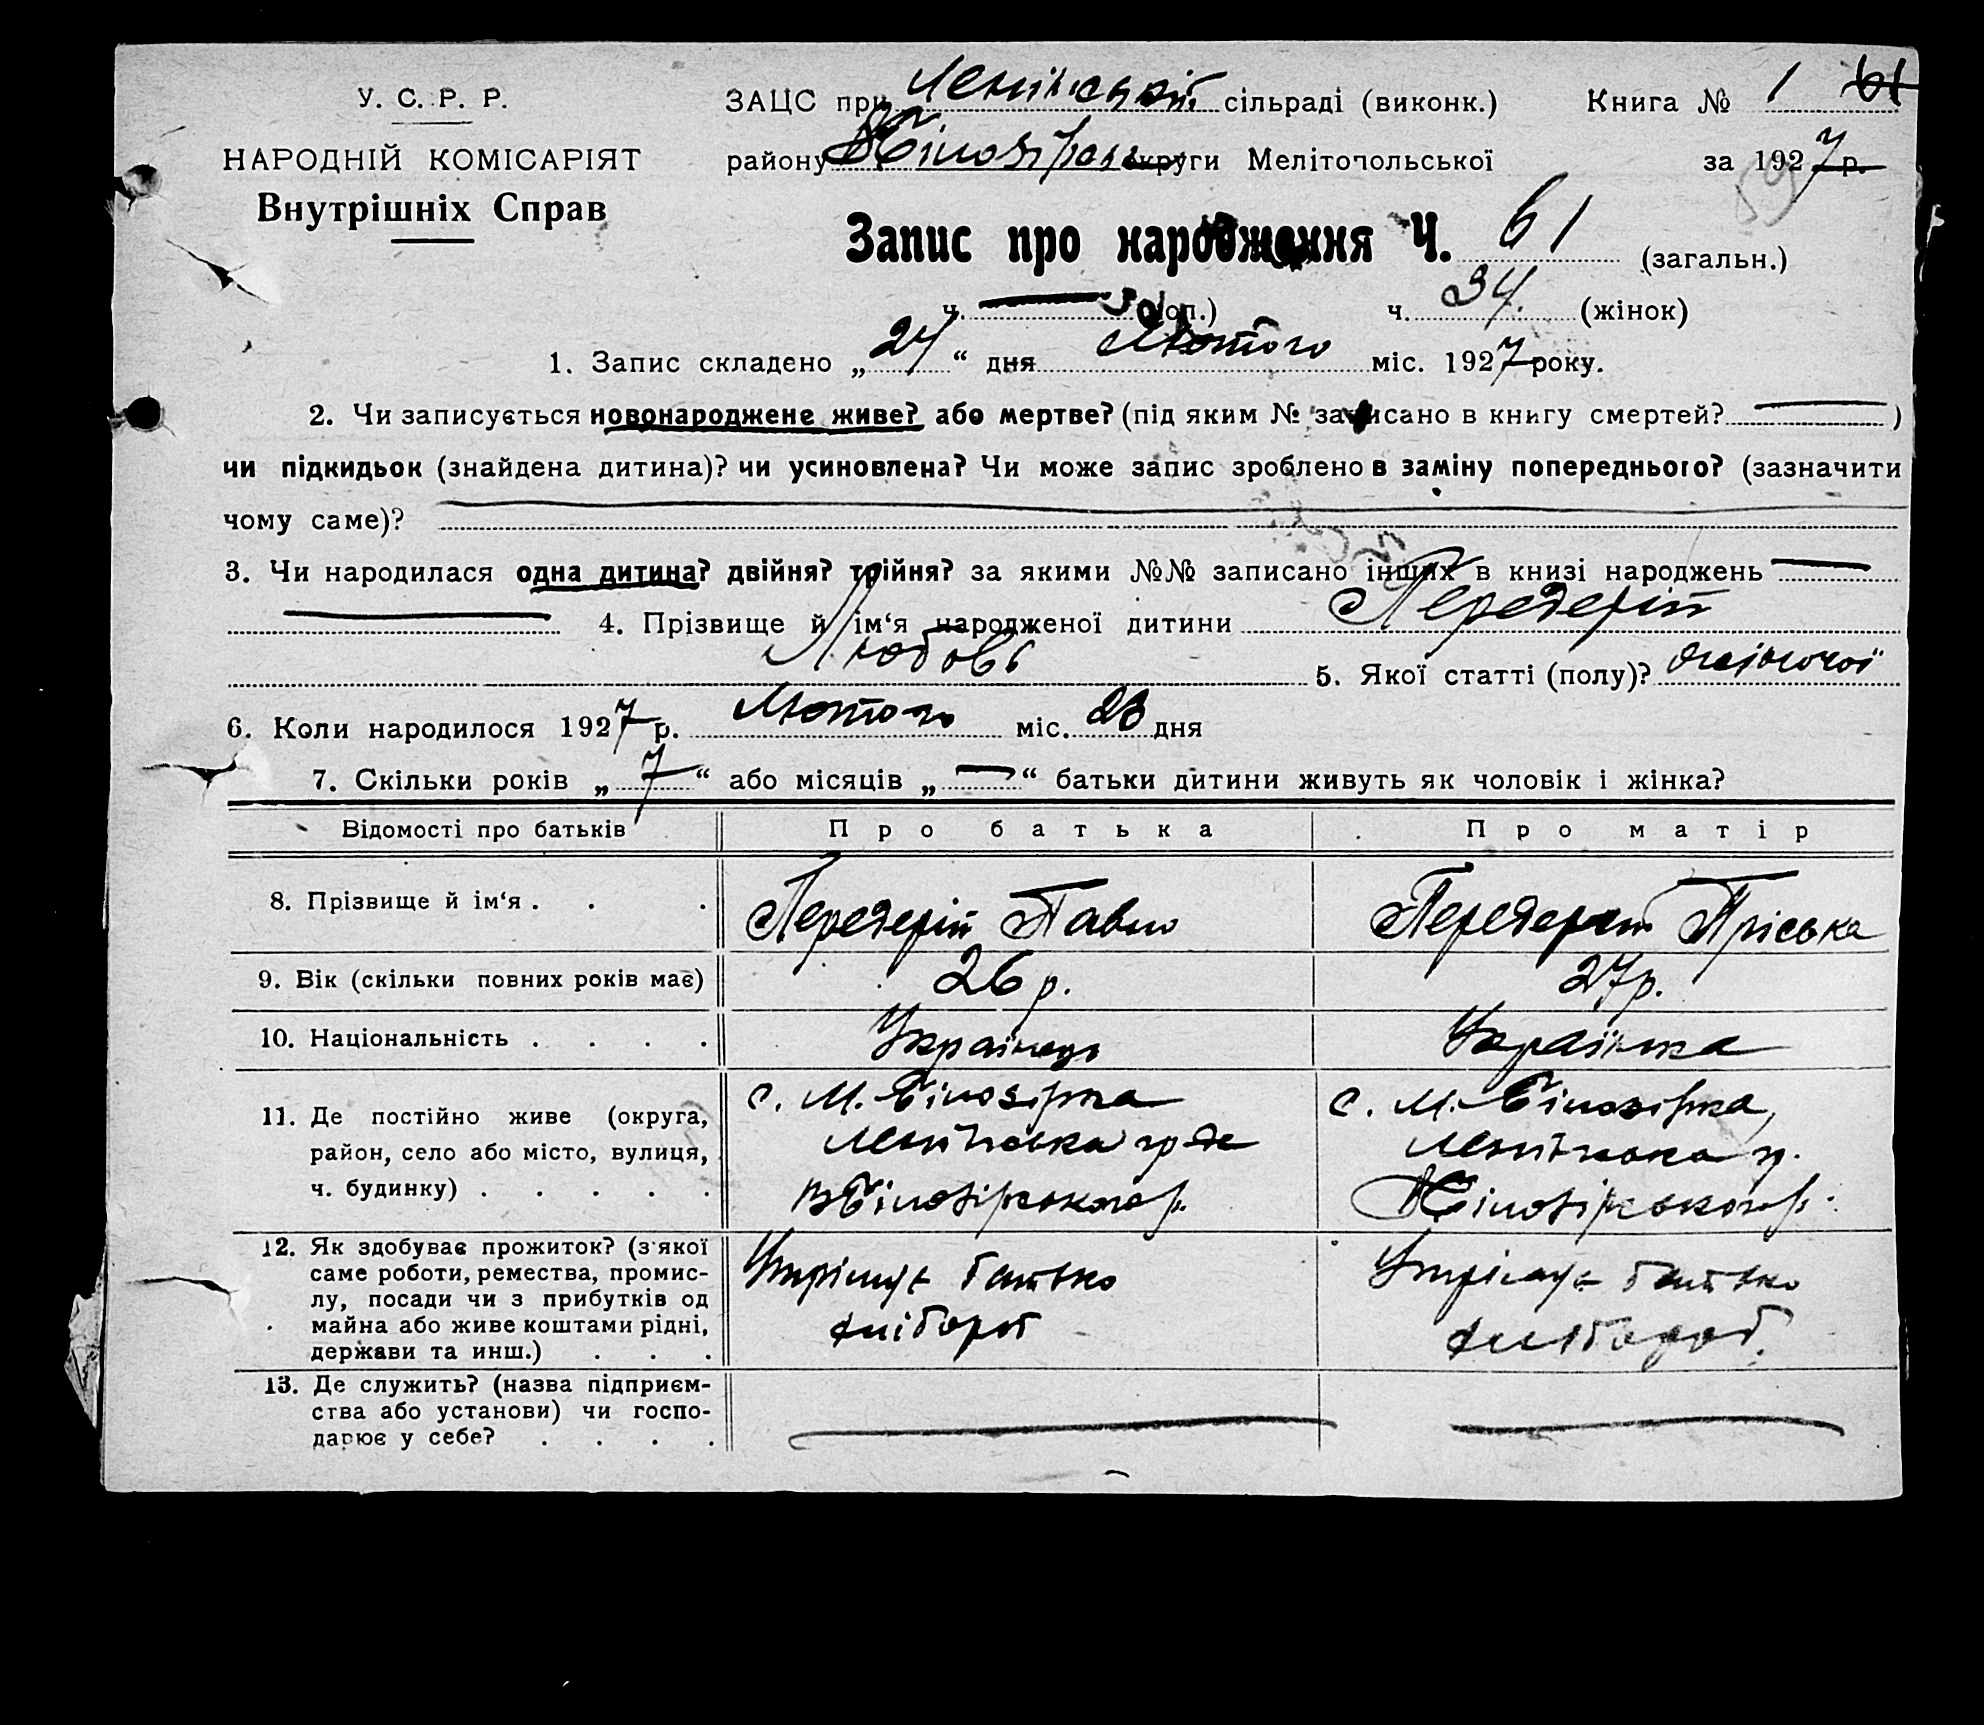 У. С. Р. Р.
НАРОДНІЙ КОМІСАРІЯТ
Внутрішніх Справ
ЗАЦС при Ленінській сільраді (виконк.) Книга № 1 61
району округи Мелітопольської за 1927 р.
Запис про народження Ч. 61 (загальн.)
ч. — (хлоп.) ч. 34 (жінок)
1. Запис складено „24“ дня Лютого міс. 1927 року.
2. Чи записується новонароджене живе? або мертве? (під яким № записано в книгу смертей? — )
чи підкидьок (знайдена дитина)? чи усиновлена? Чи може запис зроблено в заміну попереднього? (зазначити
чому саме)?
3. Чи народилася одна дитина? двійня? трійня? за якими №№ записано інших в книзі народжень —
— 4. Прізвище й ім‘я народженої дитини Передерій
Любовь 5. Якої статті (полу)? жіночої
6. Коли народилося 1927 р. Лютого міс. 23 дня
7. Скільки років „7“ або місяців „—“ батьки дитини живуть як чоловік і жінка?
Відомості про батьків Про батька Про матір
8. Прізвище й ім‘я . . . Передерій Павло Передерій Пріська
9. Вік (скільки повних років має) 26 р. 27 р.
10. Національність . . . . Українець Українка
11. Де постійно живе (округа, с. М. Білозірка с. М. Білозірка,
район, село або місто, вулиця, Ленінська Ленінська
ч. будинку) . . . . . В Білозірського р. В Білозірського р.
12. Як здобуває прожиток? (з якої Утрімує батько Утрімує батько
саме роботи, ремества, промис-
лу, посади чи з прибутків од хлібороб хлібороб
майна або живе коштами рідні,
держави та инш.) . . .
13. Де служить? (назва підприєм-
ства або установи) чи госпо-
дарює у себе? . . . . — —